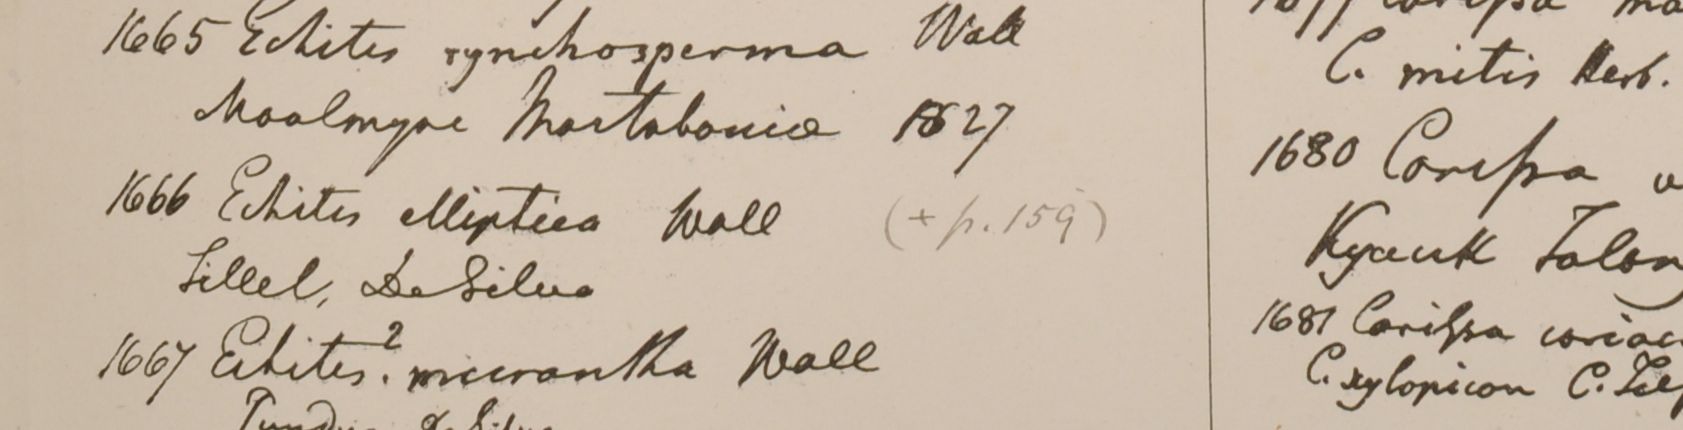 1665 Echites rynchosperma Wall
Moalmyne Martabaniae 1827
1666 Echites elliptica Wall (+ p. 159)
Sillet, De Silva
1667 Echites? micrantha Wall
De Silva
C. mitis Herb.
1680 Carissa
Kyauk Talon
1681 Carissa coriac
C. xylopicon C.